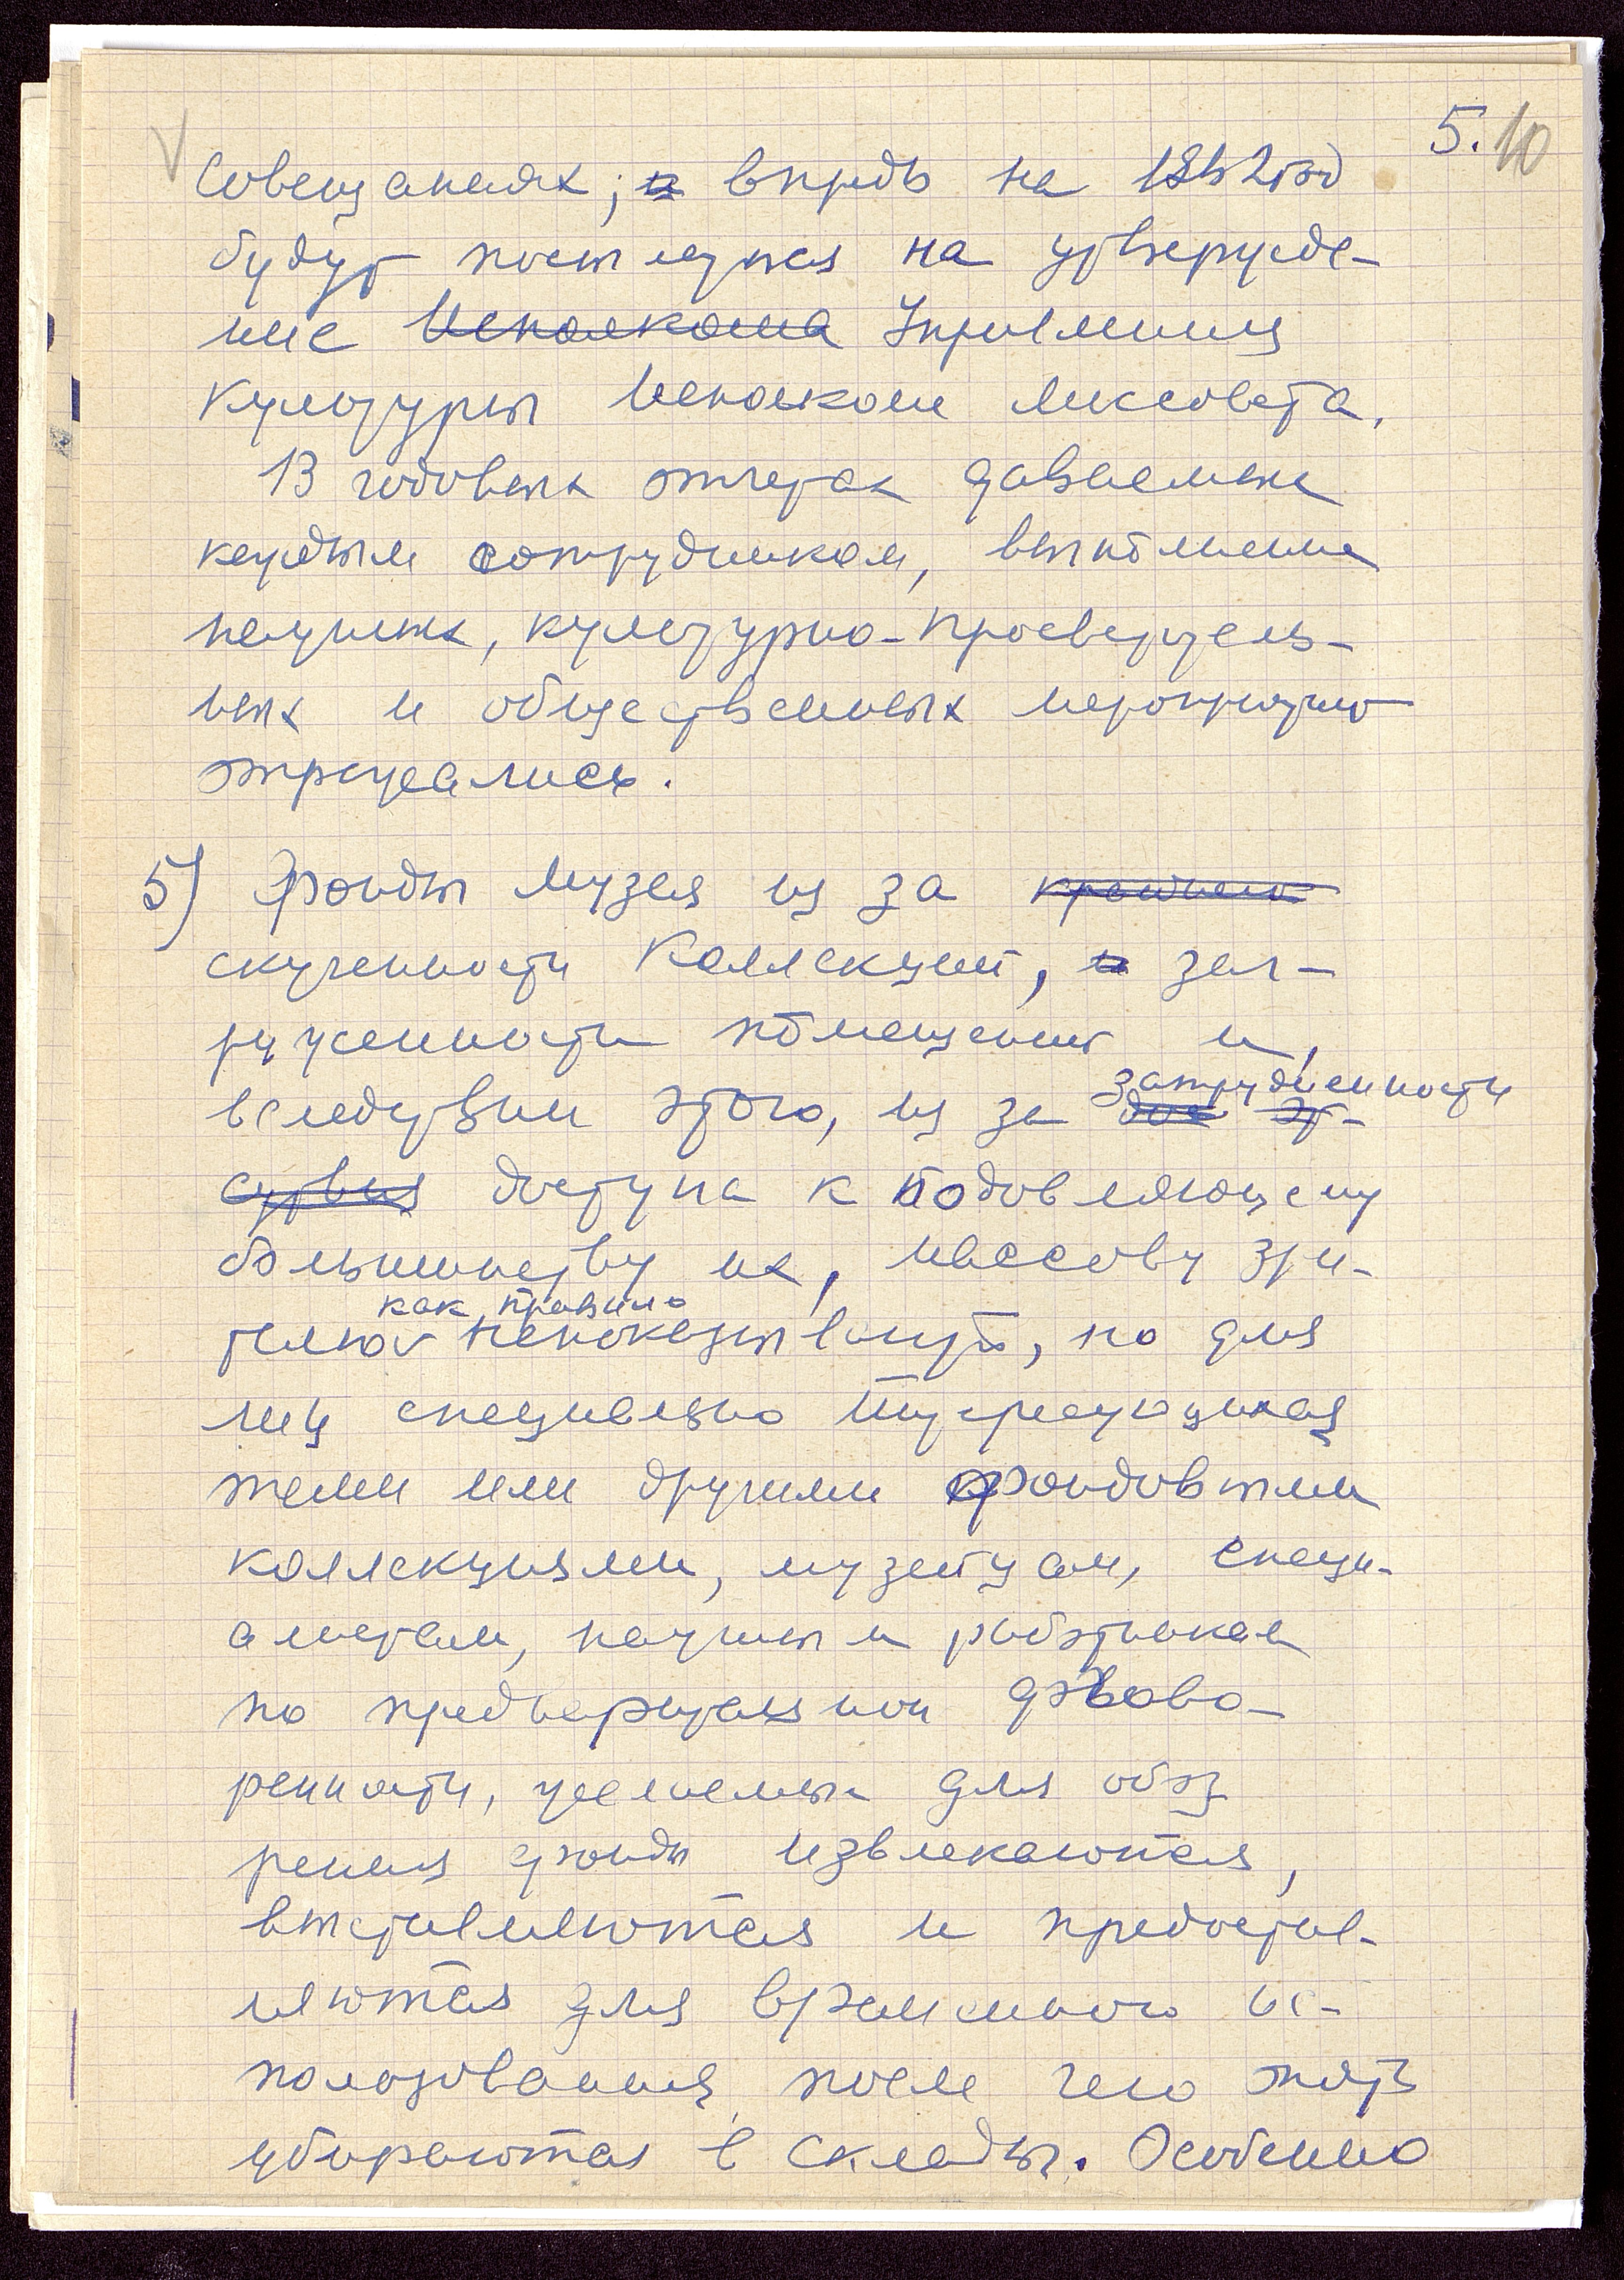 5. 10
Совещаниях; и впредь на 1952 год
будут поступать на утвержде-
ние Исполкома Управления
Культуры Исполкома Ленсовета.
В годовых отчетах даваемых
каждым сотрудником, выполнение
научных, культурно-просветитель-
ных и общественных мероприятий
отражались.
5) Фонды Музея из за крайней
скученности Коллекций, и заг-
руженности помещений и,
вследствии этого, из за затрудненности
дос от-
сутвия доступа к подовляющему
большинству их, массову зри-
как правило
телю непоказывают, но для
лиц специально интересующихся
теми или другими фондовыми
коллекциями, музейцам, специ-
алистам, научным работникам
по предварительной догово-
ренности, желаемые для обоз
рения фонды извлекаются,
выставляются и предостав-
ляются для временного ис-
пользования, после чего опять
убираются в склады. Особенно